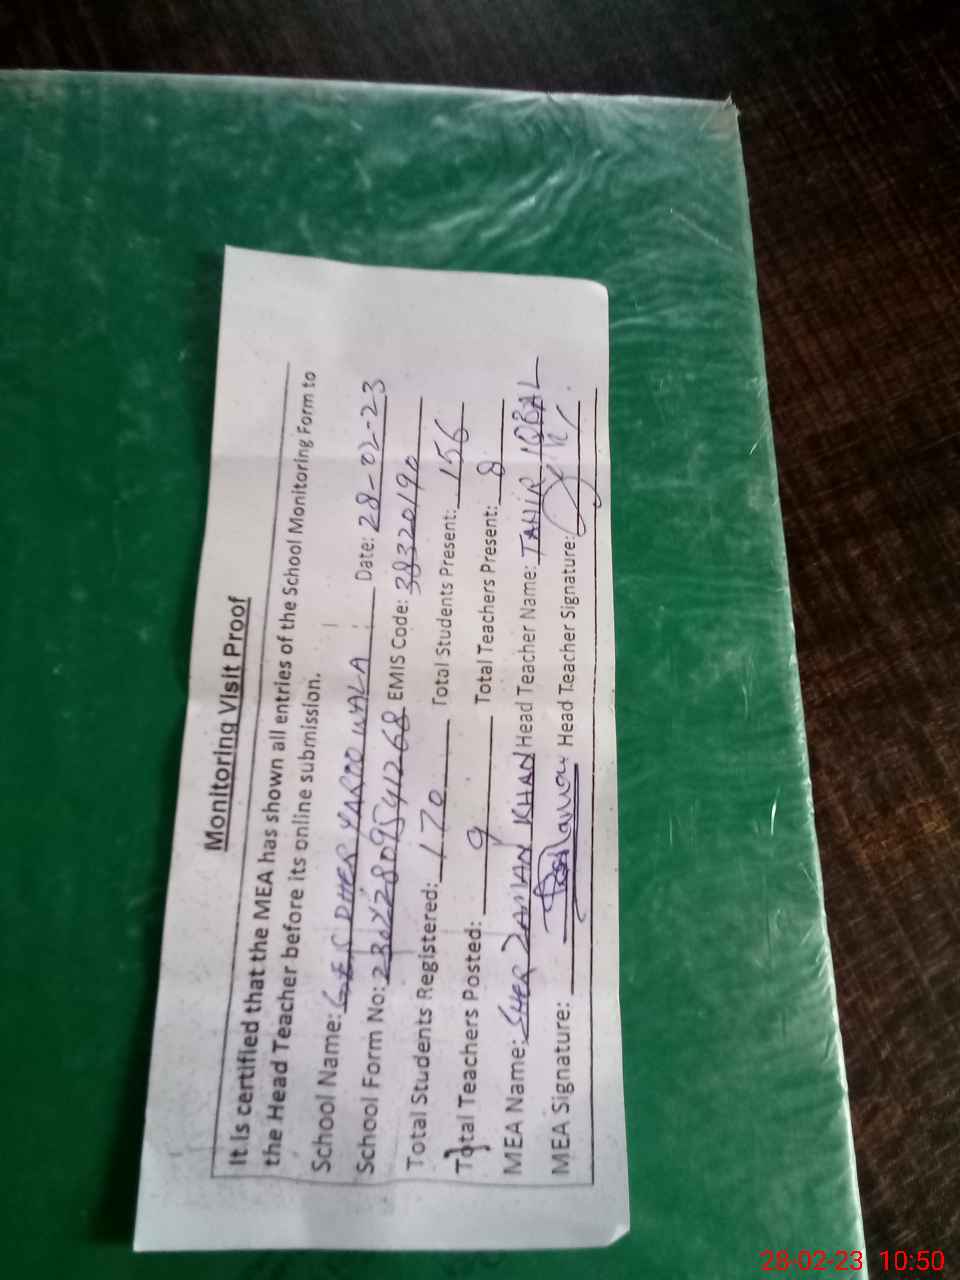 Monitoring Visit Proof
It is certified that the MEA has shown all entries of the School Monitoring Form to
the Head Teacher before its online submission.
School Name: G.E.S DHER YAROO WALA Date: 28-02-23
School Form No: EMIS Code: 38320190
Total Students Registered: 170 Total Students Present: 156
Total Teachers Posted: 9 Total Teachers Present: 8
MEA Name: SHER ZAMAN KHAN Head Teacher Name: TAHIR IQBAL
MEA Signature: Head Teacher Signature:
28-02-23 10:50